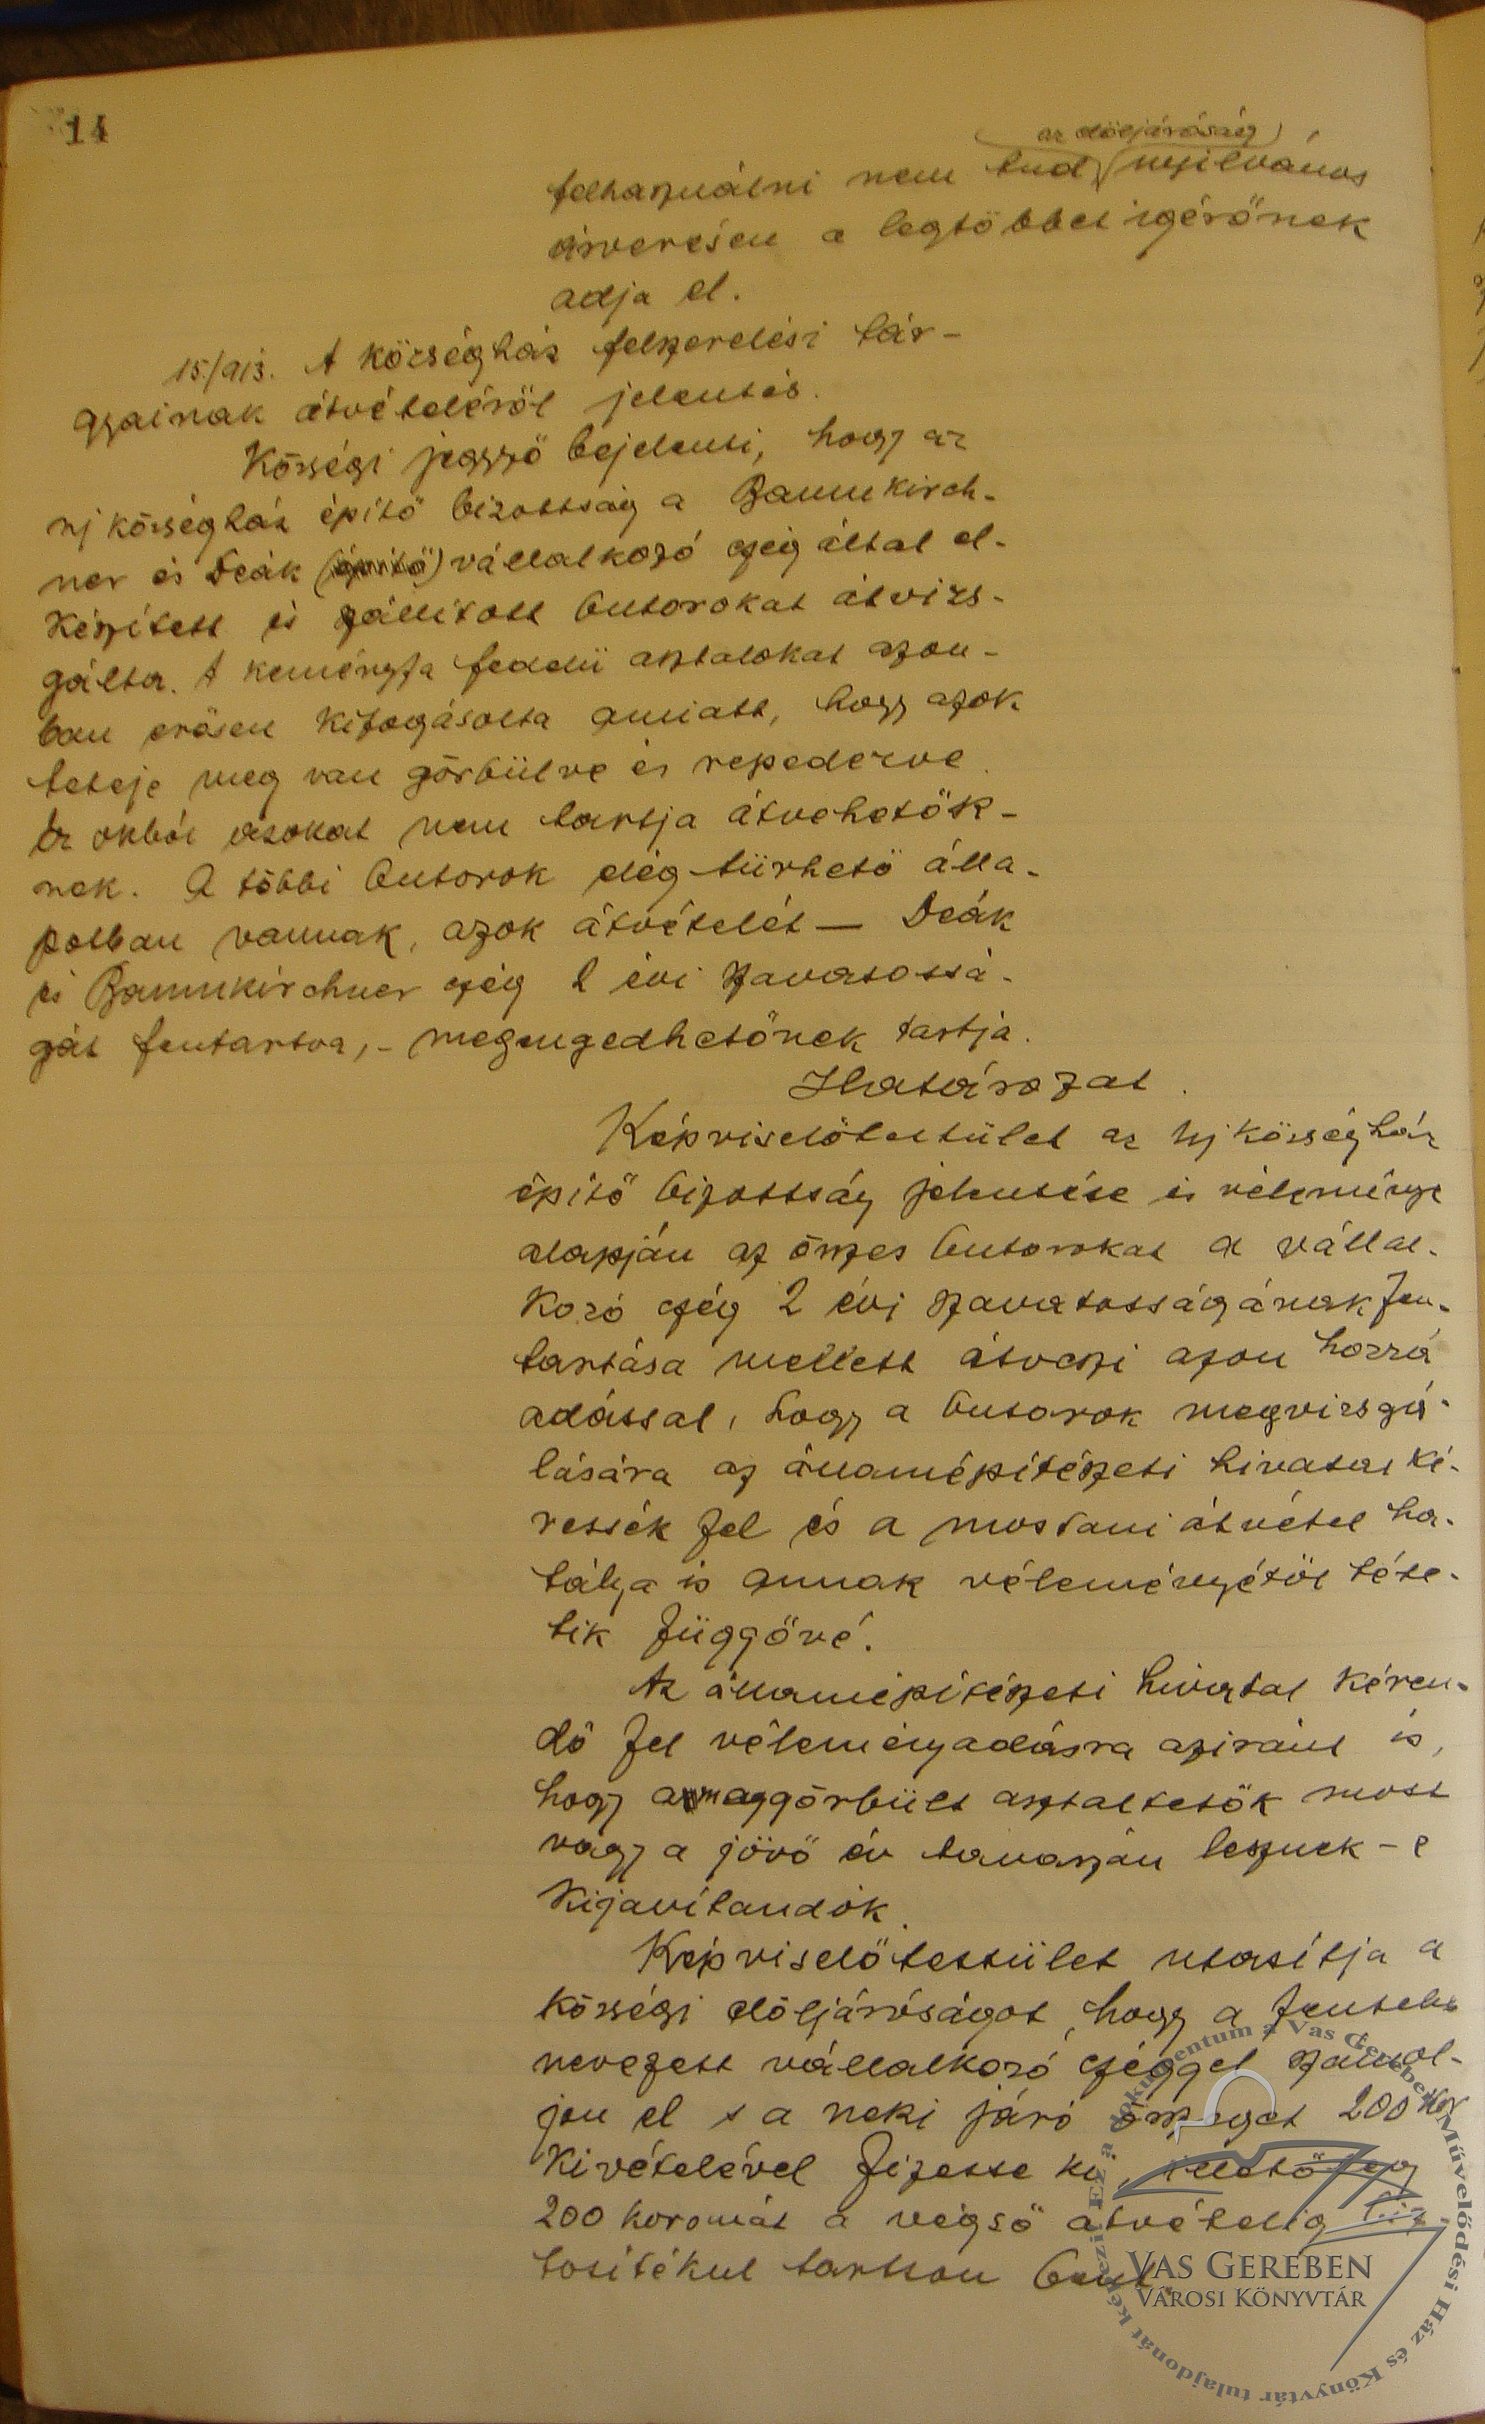 14
az elöljáróság
felhasználni nem tud nyilvános
árverésen a legtöbbet igérőnek
adja el.
15/913. A községház felszerelési tár-
gyainak átvételéről jelentés.
Községi jegyző bejelenti, hogy az
uj községház épitő bizottság a Baumkirch-
ner és Deák (épitő) vállalkozó czég által el-
készitett és szállitott butorokat átvizs-
gálta. A keményfa fedelü asztalokat azon-
ban erősen kifogásolta amiatt, hogy azok
teteje meg van görbülve és repedezve.
Ez okból azokat nem tartja átvehetők-
nek. A többi butorok elég türhető álla-
potban vannak, azok átvételét — Deák
és Baumkirchner czég 2 évi szavatossá-
gát fentartva, - megengedhetőnek tartja.
Határozat.
Képviselőtestület az uj községház
épitő bizottság jelentése és véleménye
alapján az összes butorokat a vállal-
kozó czég 2 évi szavatosságának fen-
tartása mellett átveszi azon hozzá
adással, hogy a butorok megvizsgá-
lására az államépitészeti hivatal ké-
ressék fel és a mostani átvétel ha-
tálya is annak véleményétől téte-
tik függővé.
Az államépitészeti hivatal kéren-
dő fel véleményadásra aziránt is,
hogy a meggörbült asztaltetők most
vagy a jövő év tavaszán lesznek-e
kijavitandók.
Képviselőtestület utasitja a
községi elöljáróságot, hogy a fentebb
nevezett vállalkozó czéggel számol-
jon el s a neki járó összeget 200 kor
kivételével fizesse ki, illetőleg
200 koronát a végső átvételig biz-
tositékul tartson bent.
Ez a dokumentum a Vas Gereben Művelődési Ház és Könyvtár tulajdonát képezi!
VAS GEREBEN
VÁROSI KÖNYVTÁR